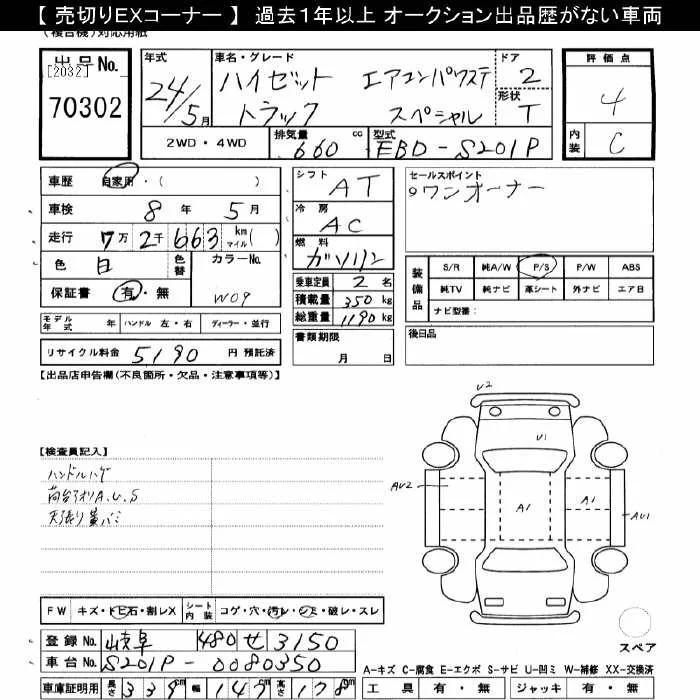 【 売切りEXコーナー 】 過去１年以上 オークション出品歴がない車両
(複合機)対応用紙
出品No. [2032] 70302
年式 24/5月
車名・グレード ハイゼット エアコンパワステ
トラック スペシャル
ドア 2
形状 T
評価点 4
内装 C
2WD・4WD 排気量 660 cc 型式 EBD-S201P
車歴 自家用・( )
車検 8年 5月
走行 7万2千663 km マイル( )
色 白 色替 カラーNo. W09
保証書 有・無
モデル年式 年 ハンドル 左・右 ディーラー・並行
リサイクル料金 5190 円 預託済
シフト AT
冷房 AC
燃料 ガソリン
乗車定員 2 名
積載量 350 kg
総重量 1190 kg
書類期限 月 日
セールスポイント
ワンオーナー
装備品 S/R 純A/W P/S P/W ABS
純TV 純ナビ 革シート 外ナビ エア日
ナビ型番:
後日品
【出品店申告欄(不良箇所・欠品・注意事項等)】
【検査員記入】
ハンドルハゲ
荷台アオリA.U.S
天張り黄バミ
U2
U1
AU2
A1
A1
AU1
スペア
FW キズ・トビ石・割レX シート内装 コゲ・穴・汚レ・シミ・破レ・スレ
登録No. 岐阜 480 せ 3150
車台No. S201P-0080350
車庫証明用 長さ 339cm 幅 147cm 高さ 178cm
A-キズ C-腐食 E-エクボ S-サビ U-凹ミ W-補修 XX-交換済
工具 有・無 ジャッキ 有・無